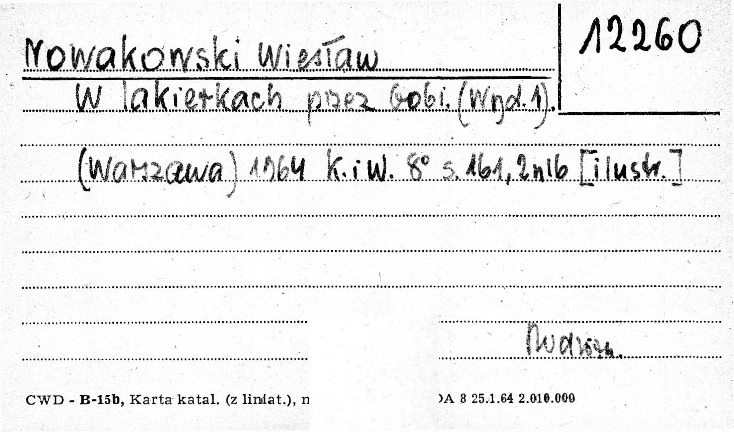 12260
Nowakowski Wiesław
W lakierkach przez Gobi. (Wyd. 1).
(Warszawa) 1964 K. i W. 8° s. 161, 2 nlb [ilustr.]
CWD - B-15b, Karta katal. (z liniat.), n
DA 8 25.1.64 2.010.000